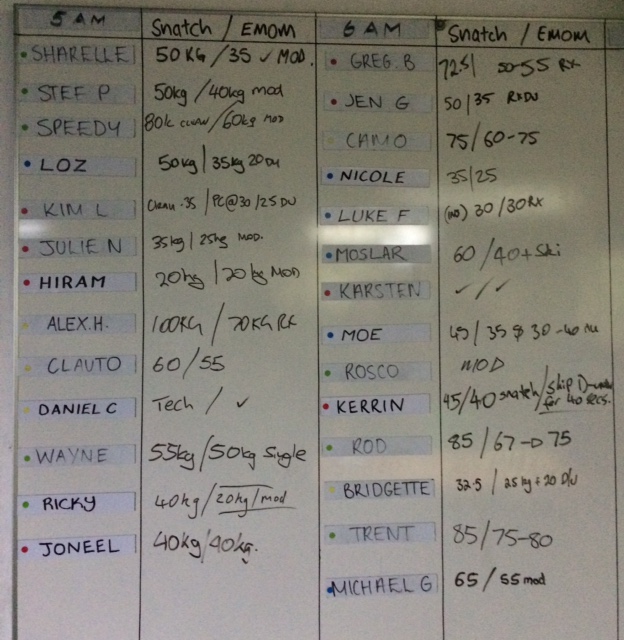 5 AM Snatch / EMOM
SHARELLE 50KG / 35 ✓ MOD.
STEF P 50kg / 40kg mod
SPEEDY 80k clean / 60kg MOD
LOZ 50kg | 35kg 20 DU
KIM L Clean .35 | PC@30 / 25 DU
JULIE N 35kg | 25kg MOD.
HIRAM 20kg | 20kg MOD
ALEX.H. 100KG / 70KG RX
CLAUTO 60 / 55
DANIEL C Tech / ✓
WAYNE 55kg / 50kg Single
RICKY 40kg / 20kg / mod
JONEEL 40kg / 40kg.
6 AM Snatch / EMOM
GREG. B 72.5 | 50-55 RX
JEN G 50 | 35 RX DU
CAMO 75 / 60-75
NICOLE 35 | 25
LUKE F 30 / 30 RX
MOSLAR 60 / 40 + Ski
KARSTEN ✓ / ✓
MOE 45 / 35 $ 30 -40
ROSCO MOD
KERRIN 45/40 snatch / skip for 40 secs.
ROD 85 / 67 -D 75
BRIDGETTE 32.5 / 25kg + 20 D/U
TRENT 85 / 75-80
MICHAEL G 65 / 55 mod